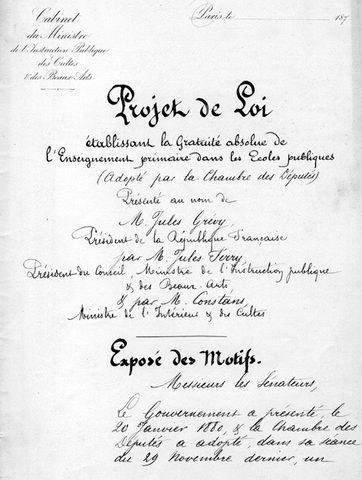 Cabinet
du Ministre
de l'Instruction Publique
des Cultes
& des Beaux-Arts
Paris, le 187
Projet de Loi
établissant la Gratuité absolue de
l'Enseignement primaire dans les Ecoles publiques
(Adopté par la Chambre des Députés)
Présenté au nom de
M. Jules Grévy,
Président de la République Française
par M. Jules Ferry
Président du Conseil, Ministre de l'Instruction publique
& des Beaux-Arts,
& par M. Constans,
Ministre de l'Intérieur & des Cultes
Exposé des Motifs.
Messieurs les Sénateurs,
Le Gouvernement a présenté, le
20 Janvier 1880, & la Chambre des
Députés a adopté, dans sa séance
du 29 Novembre dernier, un